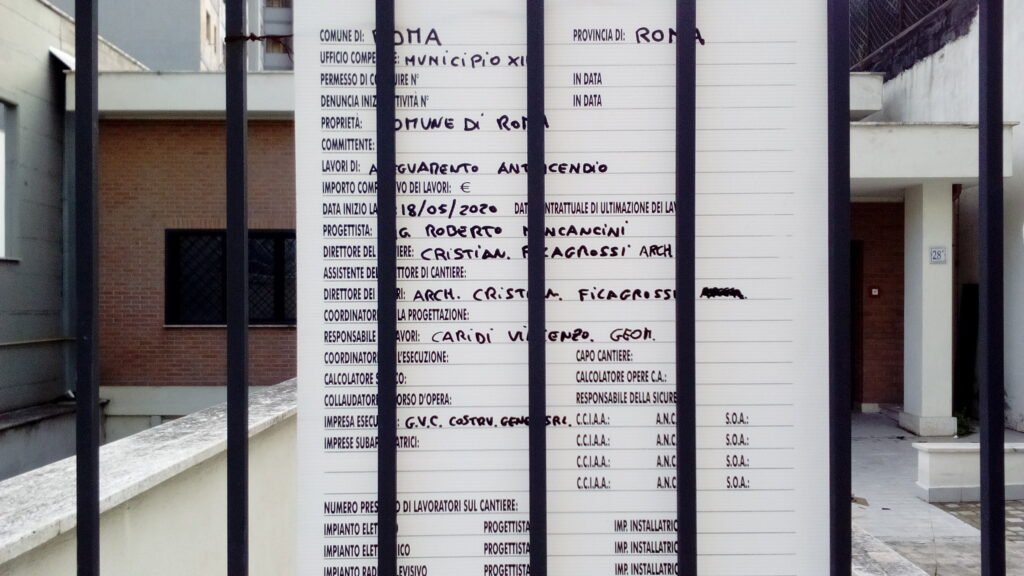 COMUNE DI: ROMA PROVINCIA DI: ROMA
UFFICIO COMPETE MUNICIPIO XII
PERMESSO DI COSTRUIRE N° IN DATA
DENUNCIA INIZIO ATTIVITÀ N° IN DATA
PROPRIETÀ: COMUNE DI ROMA
COMMITTENTE:
LAVORI DI: ADEGUAMENTO ANTINCENDIO
IMPORTO COMPLESSIVO DEI LAVORI: €
DATA INIZIO LA 18/05/2020 DATA CONTRATTUALE DI ULTIMAZIONE DEI LAV
PROGETTISTA: ING ROBERTO
DIRETTORE DEL CANTIERE: CRISTIAN. FICAGROSSI ARCH
ASSISTENTE DEL DIRETTORE DI CANTIERE:
DIRETTORE DEI LAVORI: ARCH. CRISTIAN. FICAGROSSI
COORDINATORE PER LA PROGETTAZIONE:
RESPONSABILE DEI LAVORI: CARIDI VINCENZO. GEOM.
COORDINATORE PER L'ESECUZIONE: CAPO CANTIERE:
CALCOLATORE STATICO: CALCOLATORE OPERE C.A.:
COLLAUDATORE IN CORSO D'OPERA: RESPONSABILE DELLA SICUREZZA
IMPRESA ESECUTRICE: G.V.C. COSTRU. GENE SRL. C.C.I.A.A.: A.N.C. S.O.A.:
IMPRESE SUBAPPALTATRICI: C.C.I.A.A.: A.N.C. S.O.A.:
C.C.I.A.A.: A.N.C. S.O.A.:
C.C.I.A.A.: A.N.C. S.O.A.:
NUMERO PRESUNTO DI LAVORATORI SUL CANTIERE:
IMPIANTO ELETTRICO PROGETTISTA IMP. INSTALLATRICE
IMPIANTO ELETTRONICO PROGETTISTA IMP. INSTALLATRICE
IMPIANTO RADIOTELEVISIVO PROGETTISTA IMP. INSTALLATRICE
28